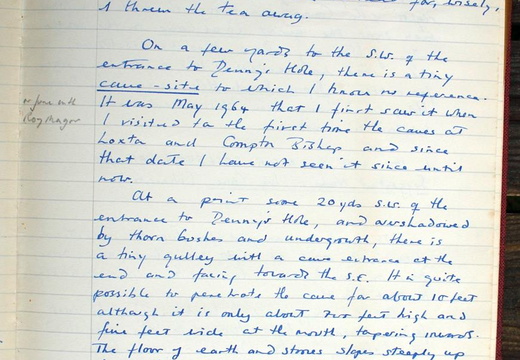 I threw the tea away.
On a few yards to the S.W. of the
entrance to Denny's Hole, there is a tiny
cave-site to which I know no reference.
It was May 1964 that I first saw it when
I visited for the first time the caves at
Loxton and Compton Bishop and since
that date I have not seen it since until
now.
At a point some 20 yds S.W. of the
entrance to Denny's Hole, and overshadowed
by thorn bushes and undergrowth, there is
a tiny gulley with a cave entrance at the
end and facing towards the S.E. It is quite
possible to penetrate the cave for about 10 feet
although it is only about two feet high and
five feet wide at the mouth, tapering inwards.
The floor of earth and stones slopes steeply up